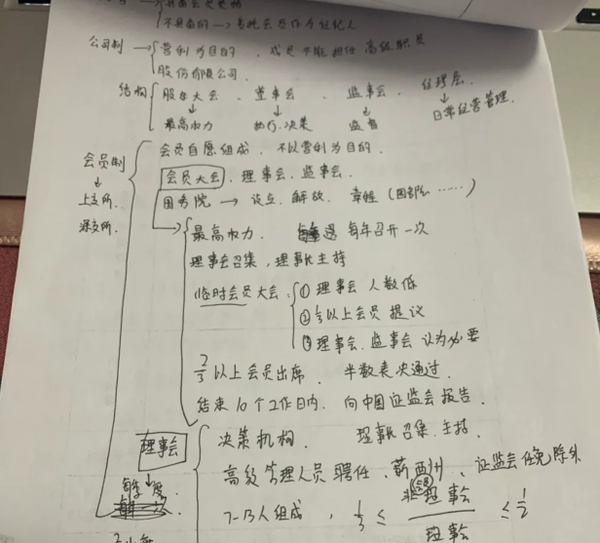 不具备的 → 高纯会员作为经纪人
公司制 → 营利为目的，成员不能担任高级职员
股份有限公司.
结构 股东大会、董事会、监事会、经理层.
最高权力 执行.决策 监督 日常经营管理.
会员制 会员自愿组成，不以营利为目的.
↓ 会员大会、理事会、监事会.
上交所. 国务院 → 设立、解散、章程（国务院……）
深交所. 最高权力. 每年召开一次
理事会召集，理事长主持
临时会员大会 ① 理事会人数低
② 1/3以上会员提议
③ 理事会.监事会认为必要
2/3以上会员出席. 半数表决通过.
结束10个工作日内. 向中国证监会报告.
理事会 决策机构. 理事长召集.主持.
↓ 高级管理人员聘任、薪酬、证监会任免除外
每季度
7-13人组成， 1/3 ≤ 非会员理事会 / 理事会 ≤ 1/2